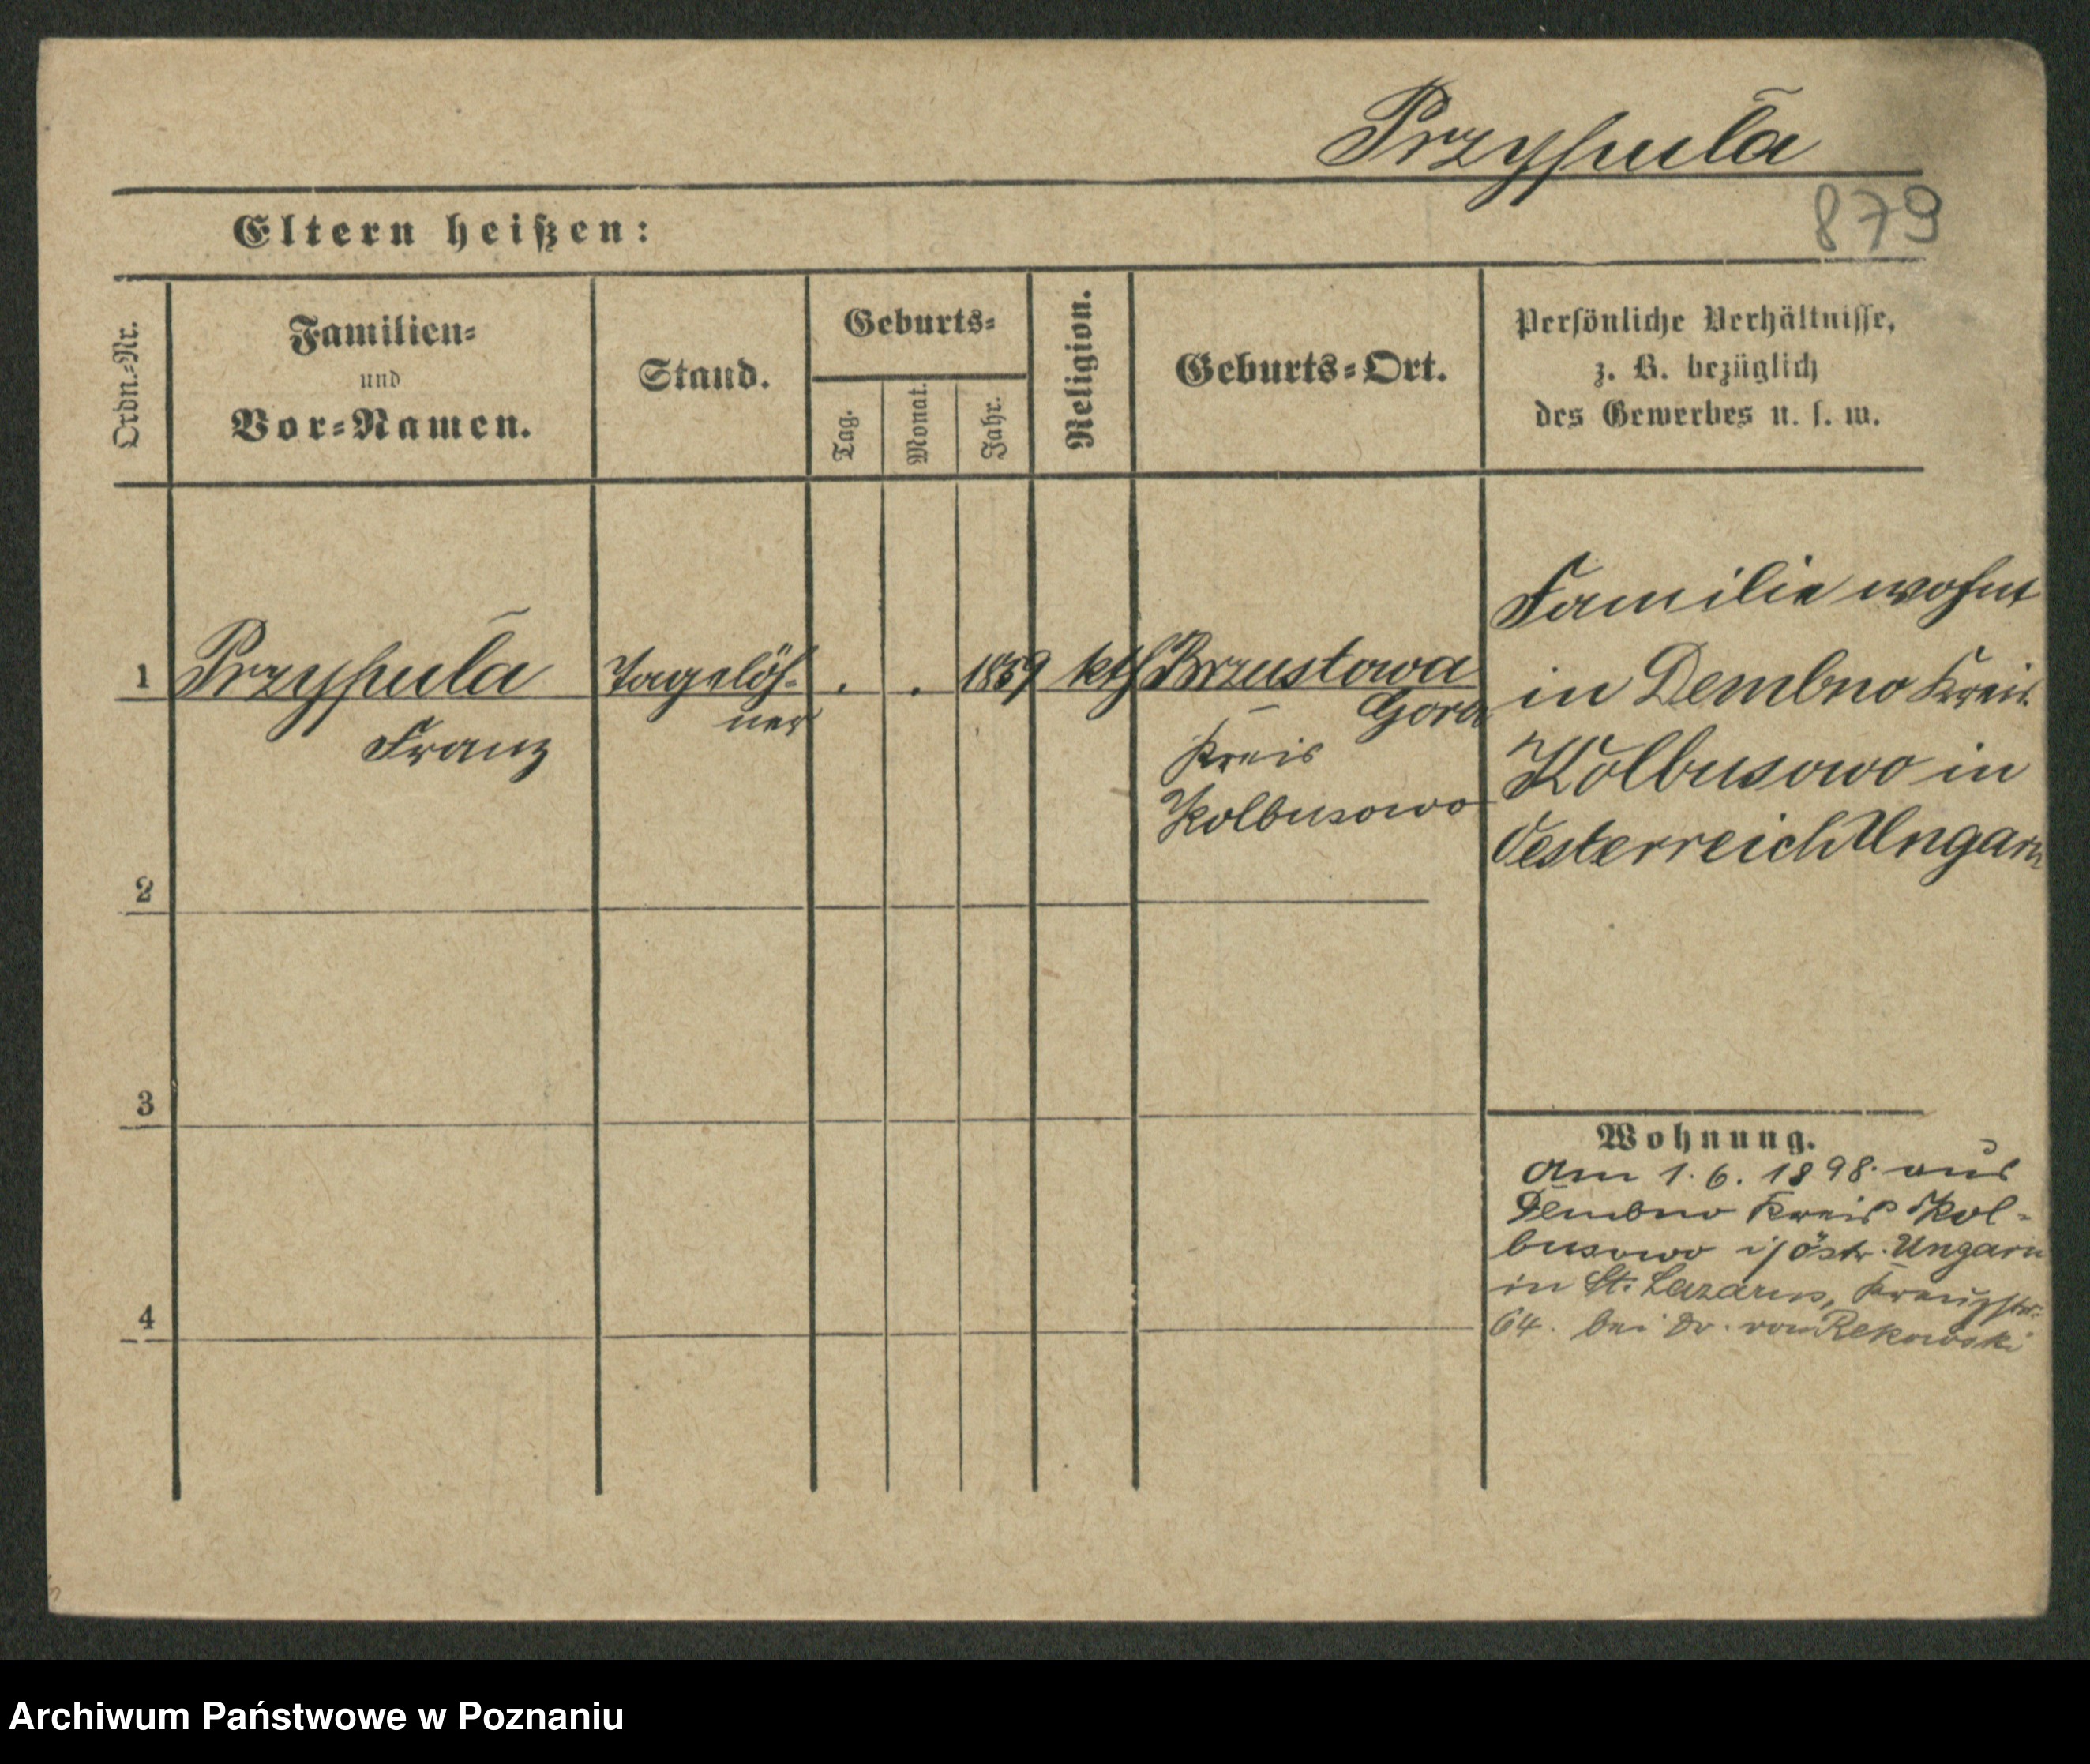 Przypula
879
Eltern heißen:
Ordn.-Nr.
Familien-
und
Vor-Namen.
Stand.
Geburts-
Tag.
Monat.
Jahr.
Religion.
Geburts-Ort.
Persönliche Verhältnisse,
z. B. bezüglich
des Gewerbes u. s. w.
1 Przypula Tagelöh- . . 1859 kth Brzustowa
ner Gora
Franz Kreis
Kolbusowo
Familie wohnt
in Dembno Kreis
Kolbusowo in
Oesterreich Ungarn
2
3
4
Wohnung.
Am 1. 6. 1898. aus
Dembno Kreis Kol-
busowo i/östr. Ungarn
in St. Lazarus, Kreuzstr.
64. bei Dr. von Rekowski
Archiwum Państwowe w Poznaniu